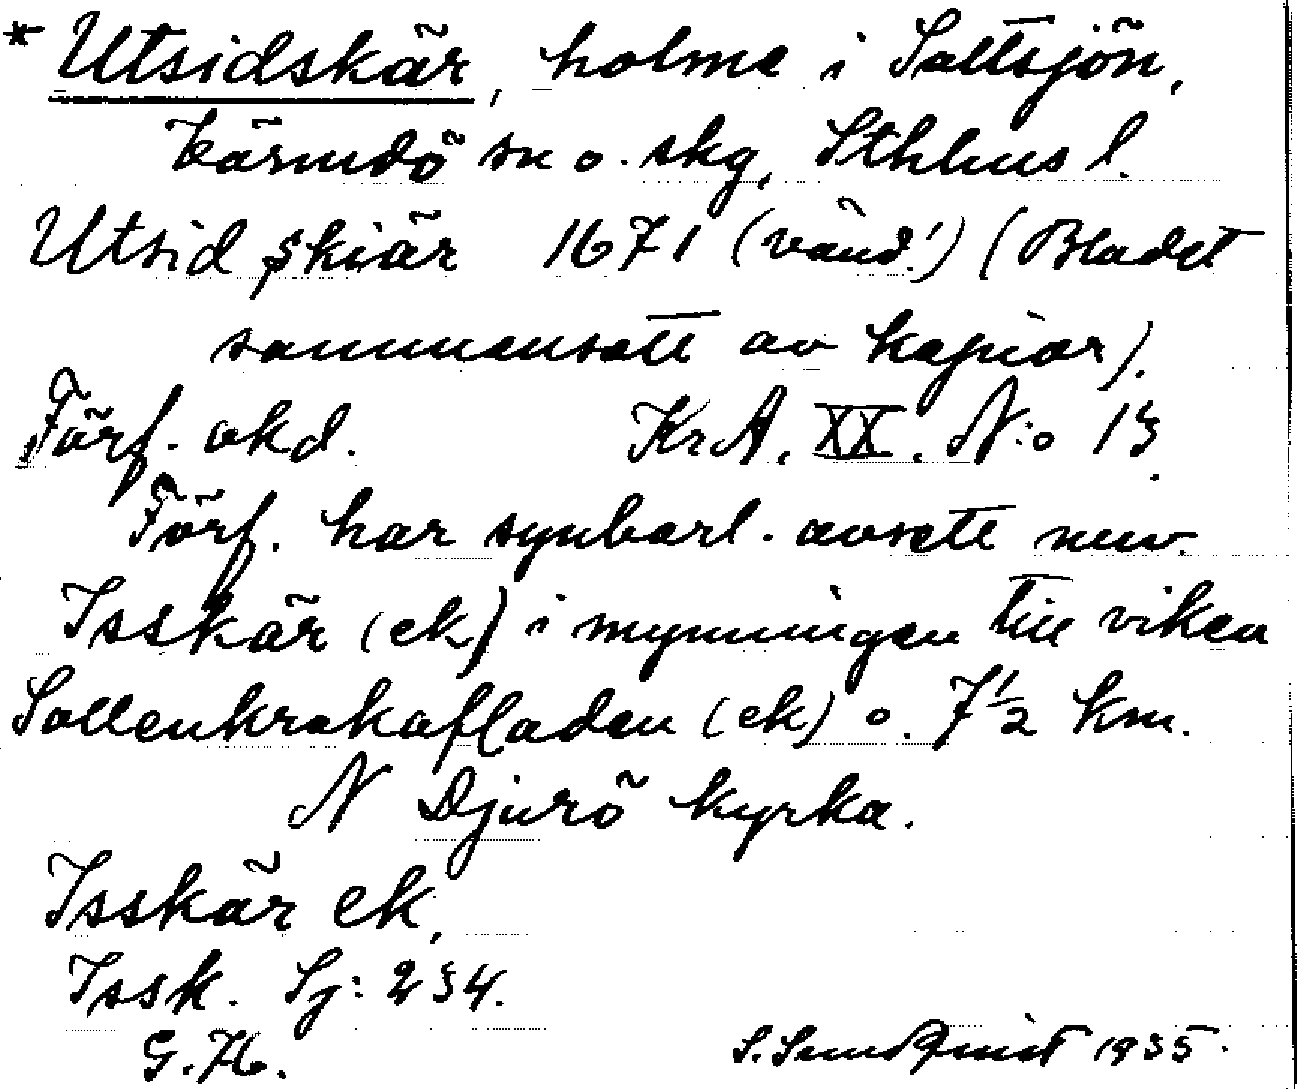 * Utsidskär, holme i Saltsjön,
Värmdö sn o. skg, Sthlms l.
Utsid skiär 1671 (vänd!) (Bladet
sammansatt av kopior).
Förf. okd. Kr. A. XX. N:o 13.
Förf. har synbarl. avsett nuv.
Isskär (ek) i mynningen till viken
Sollenkrokafladen (ek) o. 7 1/2 km.
N Djurö kyrka.
Isskär ek,
Issk. Sj: 234.
G. H.
S. Sundqvist 1935.